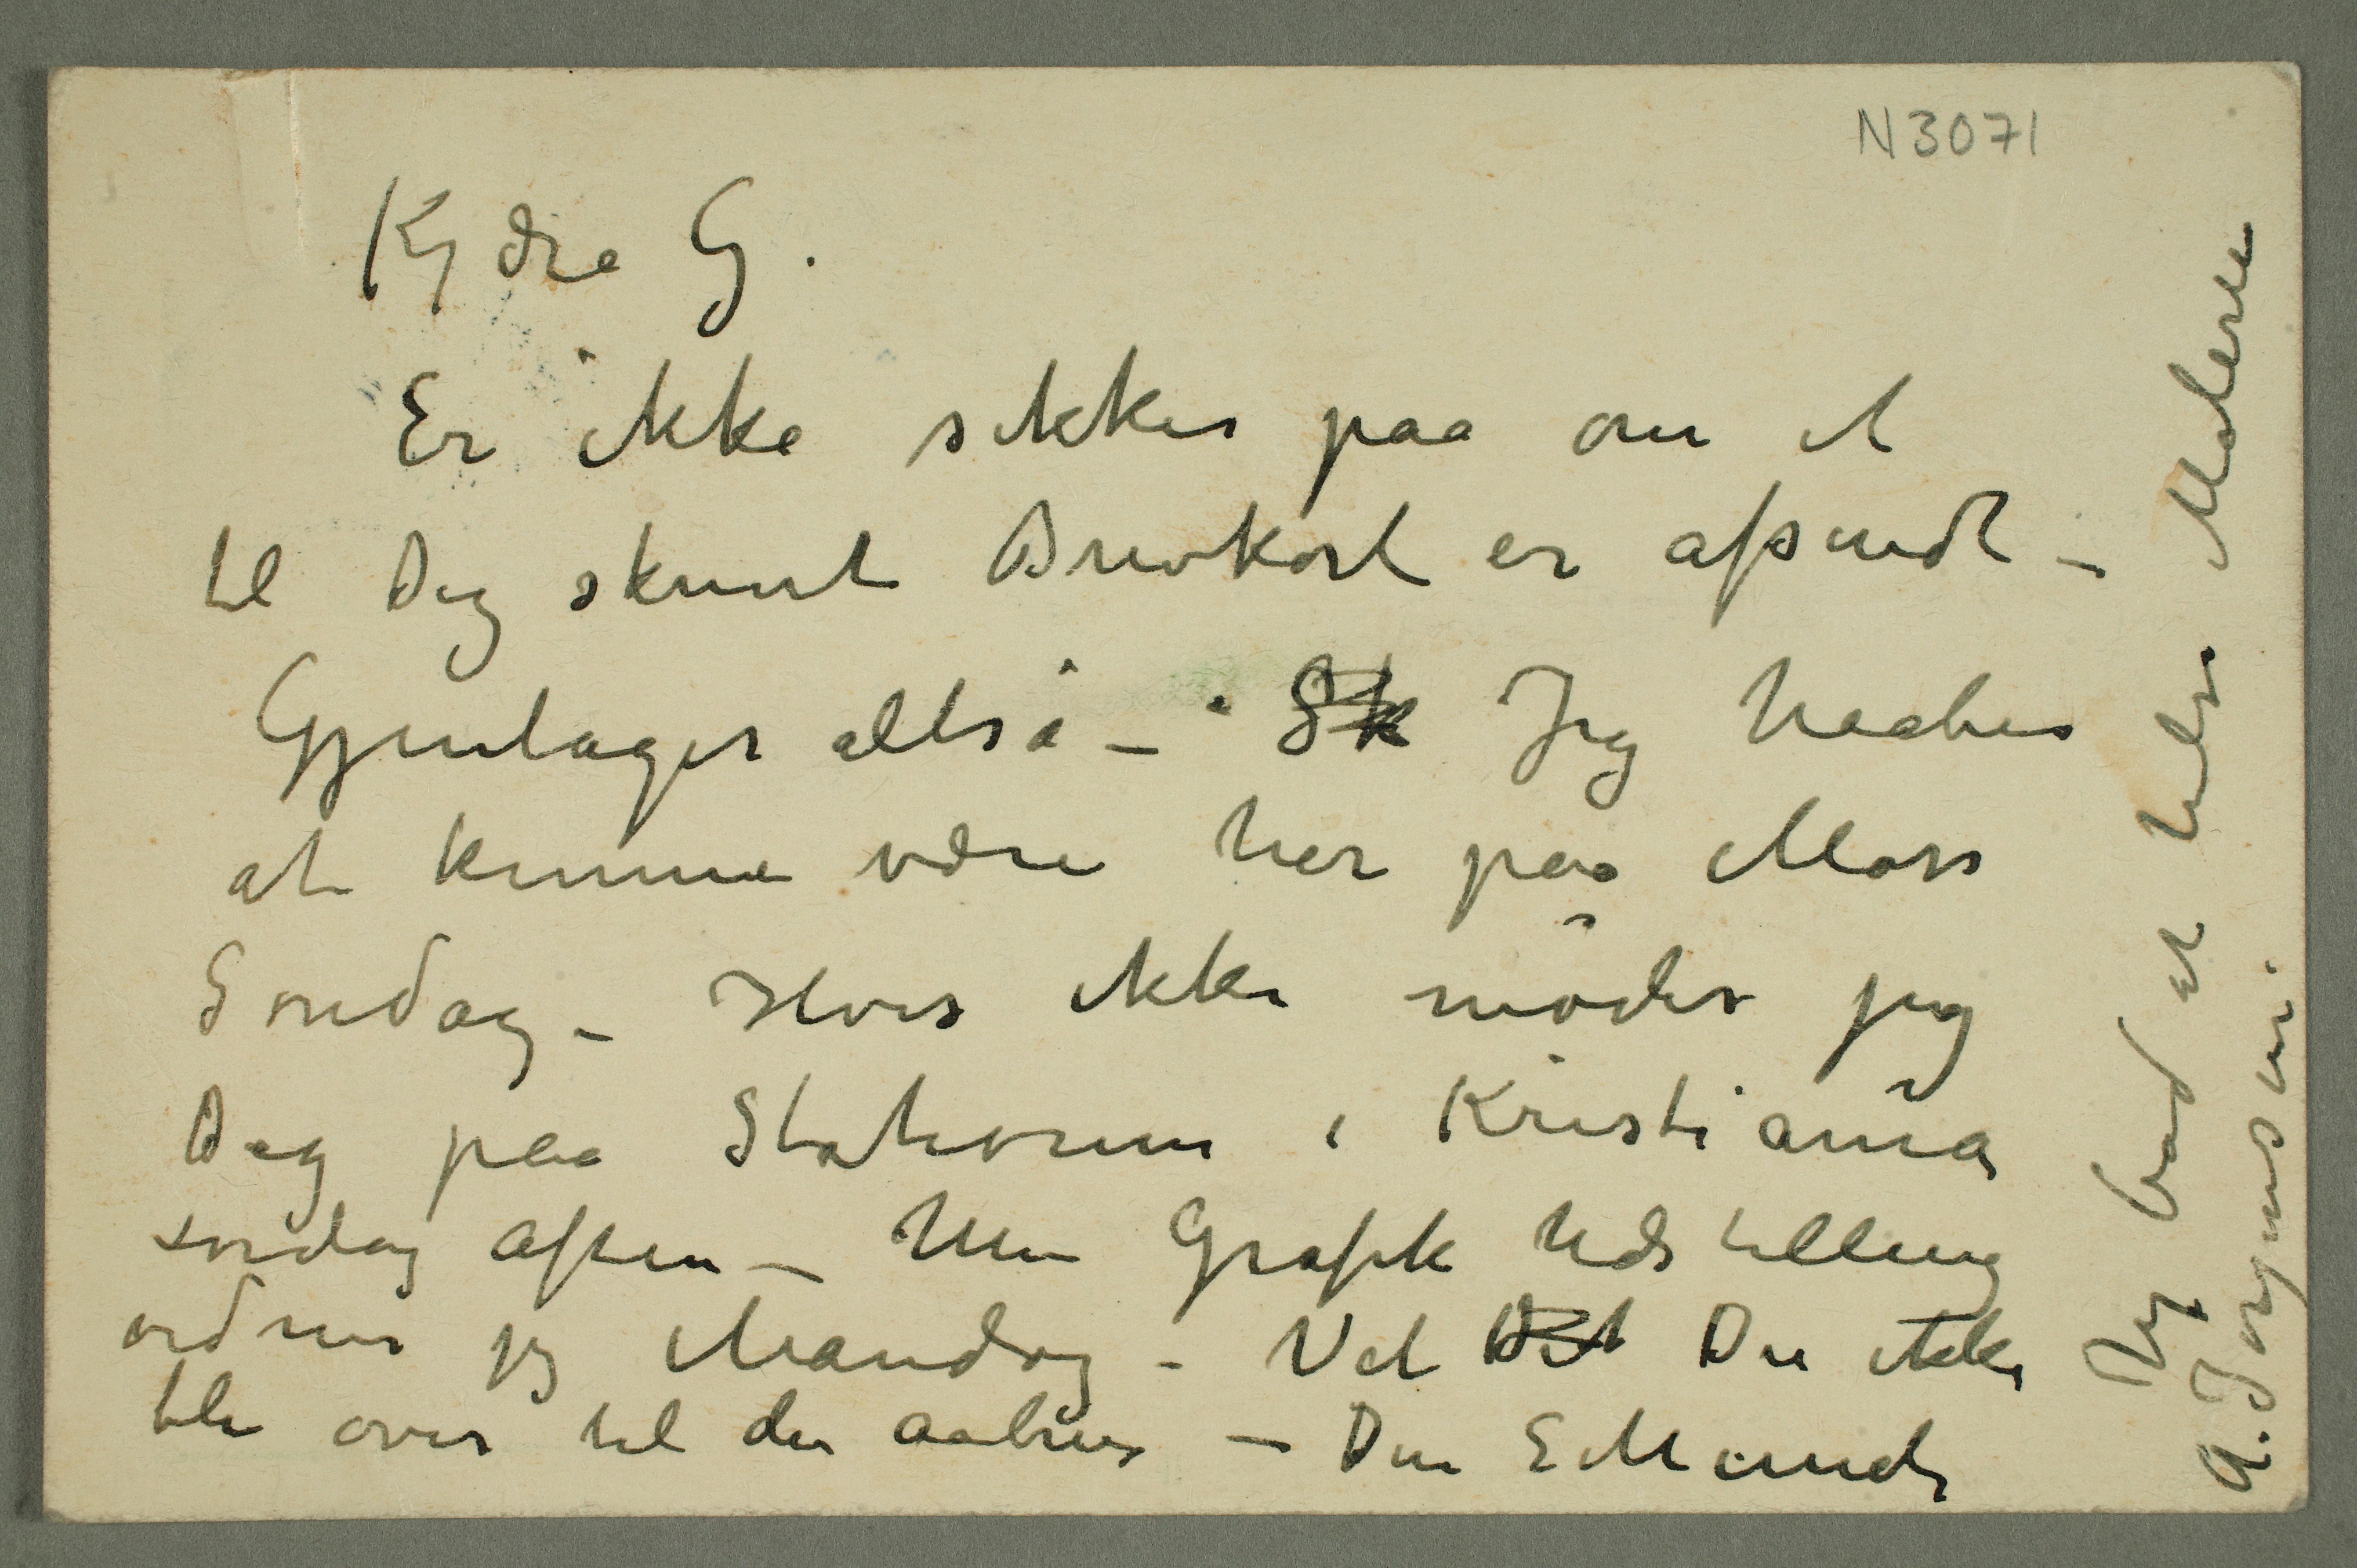 N3071
Kjære G.
Er ikke sikker paa om et
til Dig skrevet Brevkort er afsendt –
Gjentager altså – Sk Jeg haaber
at kunne være her paa Moss
Søndag – Hvis ikke møder jeg
Dig paa Stationen i Kristiania
søndag aften – Min Grafik Udstilling
ordner jeg Mandag – Vil Du ikke
bli over til den aabnes – Din E Munch
Jeg bad at hilse Maleren
A. Jorgensen.